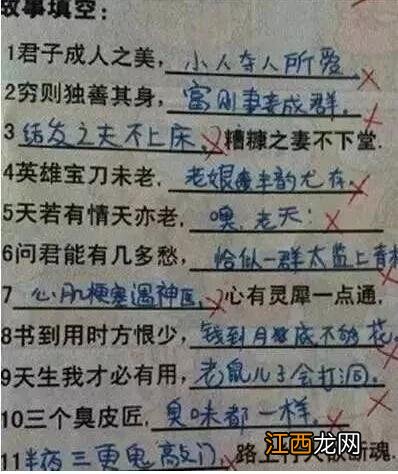 故事填空:
1君子成人之美,小人夺人所爱
2穷则独善其身,富则妻妾成群.
3结发之夫不上床,糟糠之妻不下堂.
4英雄宝刀未老,老娘半韵尤存.
5天若有情天亦老,噢,老天!
6问君能有几多愁,恰似一群太监上青
7心肌梗塞遇神医,心有灵犀一点通,
8书到用时方恨少,钱到月底不够花.
9天生我才必有用,老鼠儿子会打洞.
10三个臭皮匠,臭味都一样
11半夜三更鬼敲门,路上行人欲断魂.
江西龙网